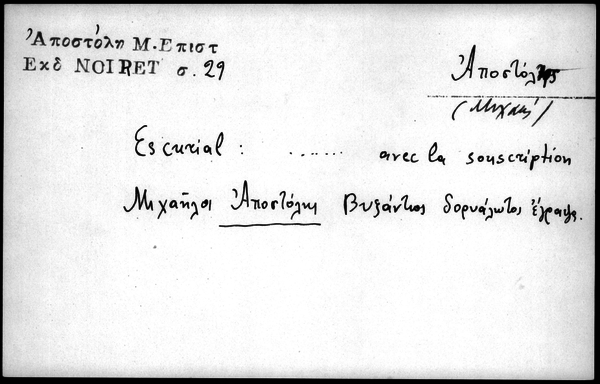 Ἀποστόλη Μ. Επιστ
Εκδ NOIRET σ. 29
Ἀποστόλης
(Μιχαήλ)
Escurial : ...... avec la souscription
Μιχαῆλοι Ἀποστόλης Βυζάντιος δορυάλωτος ἔγραψε.